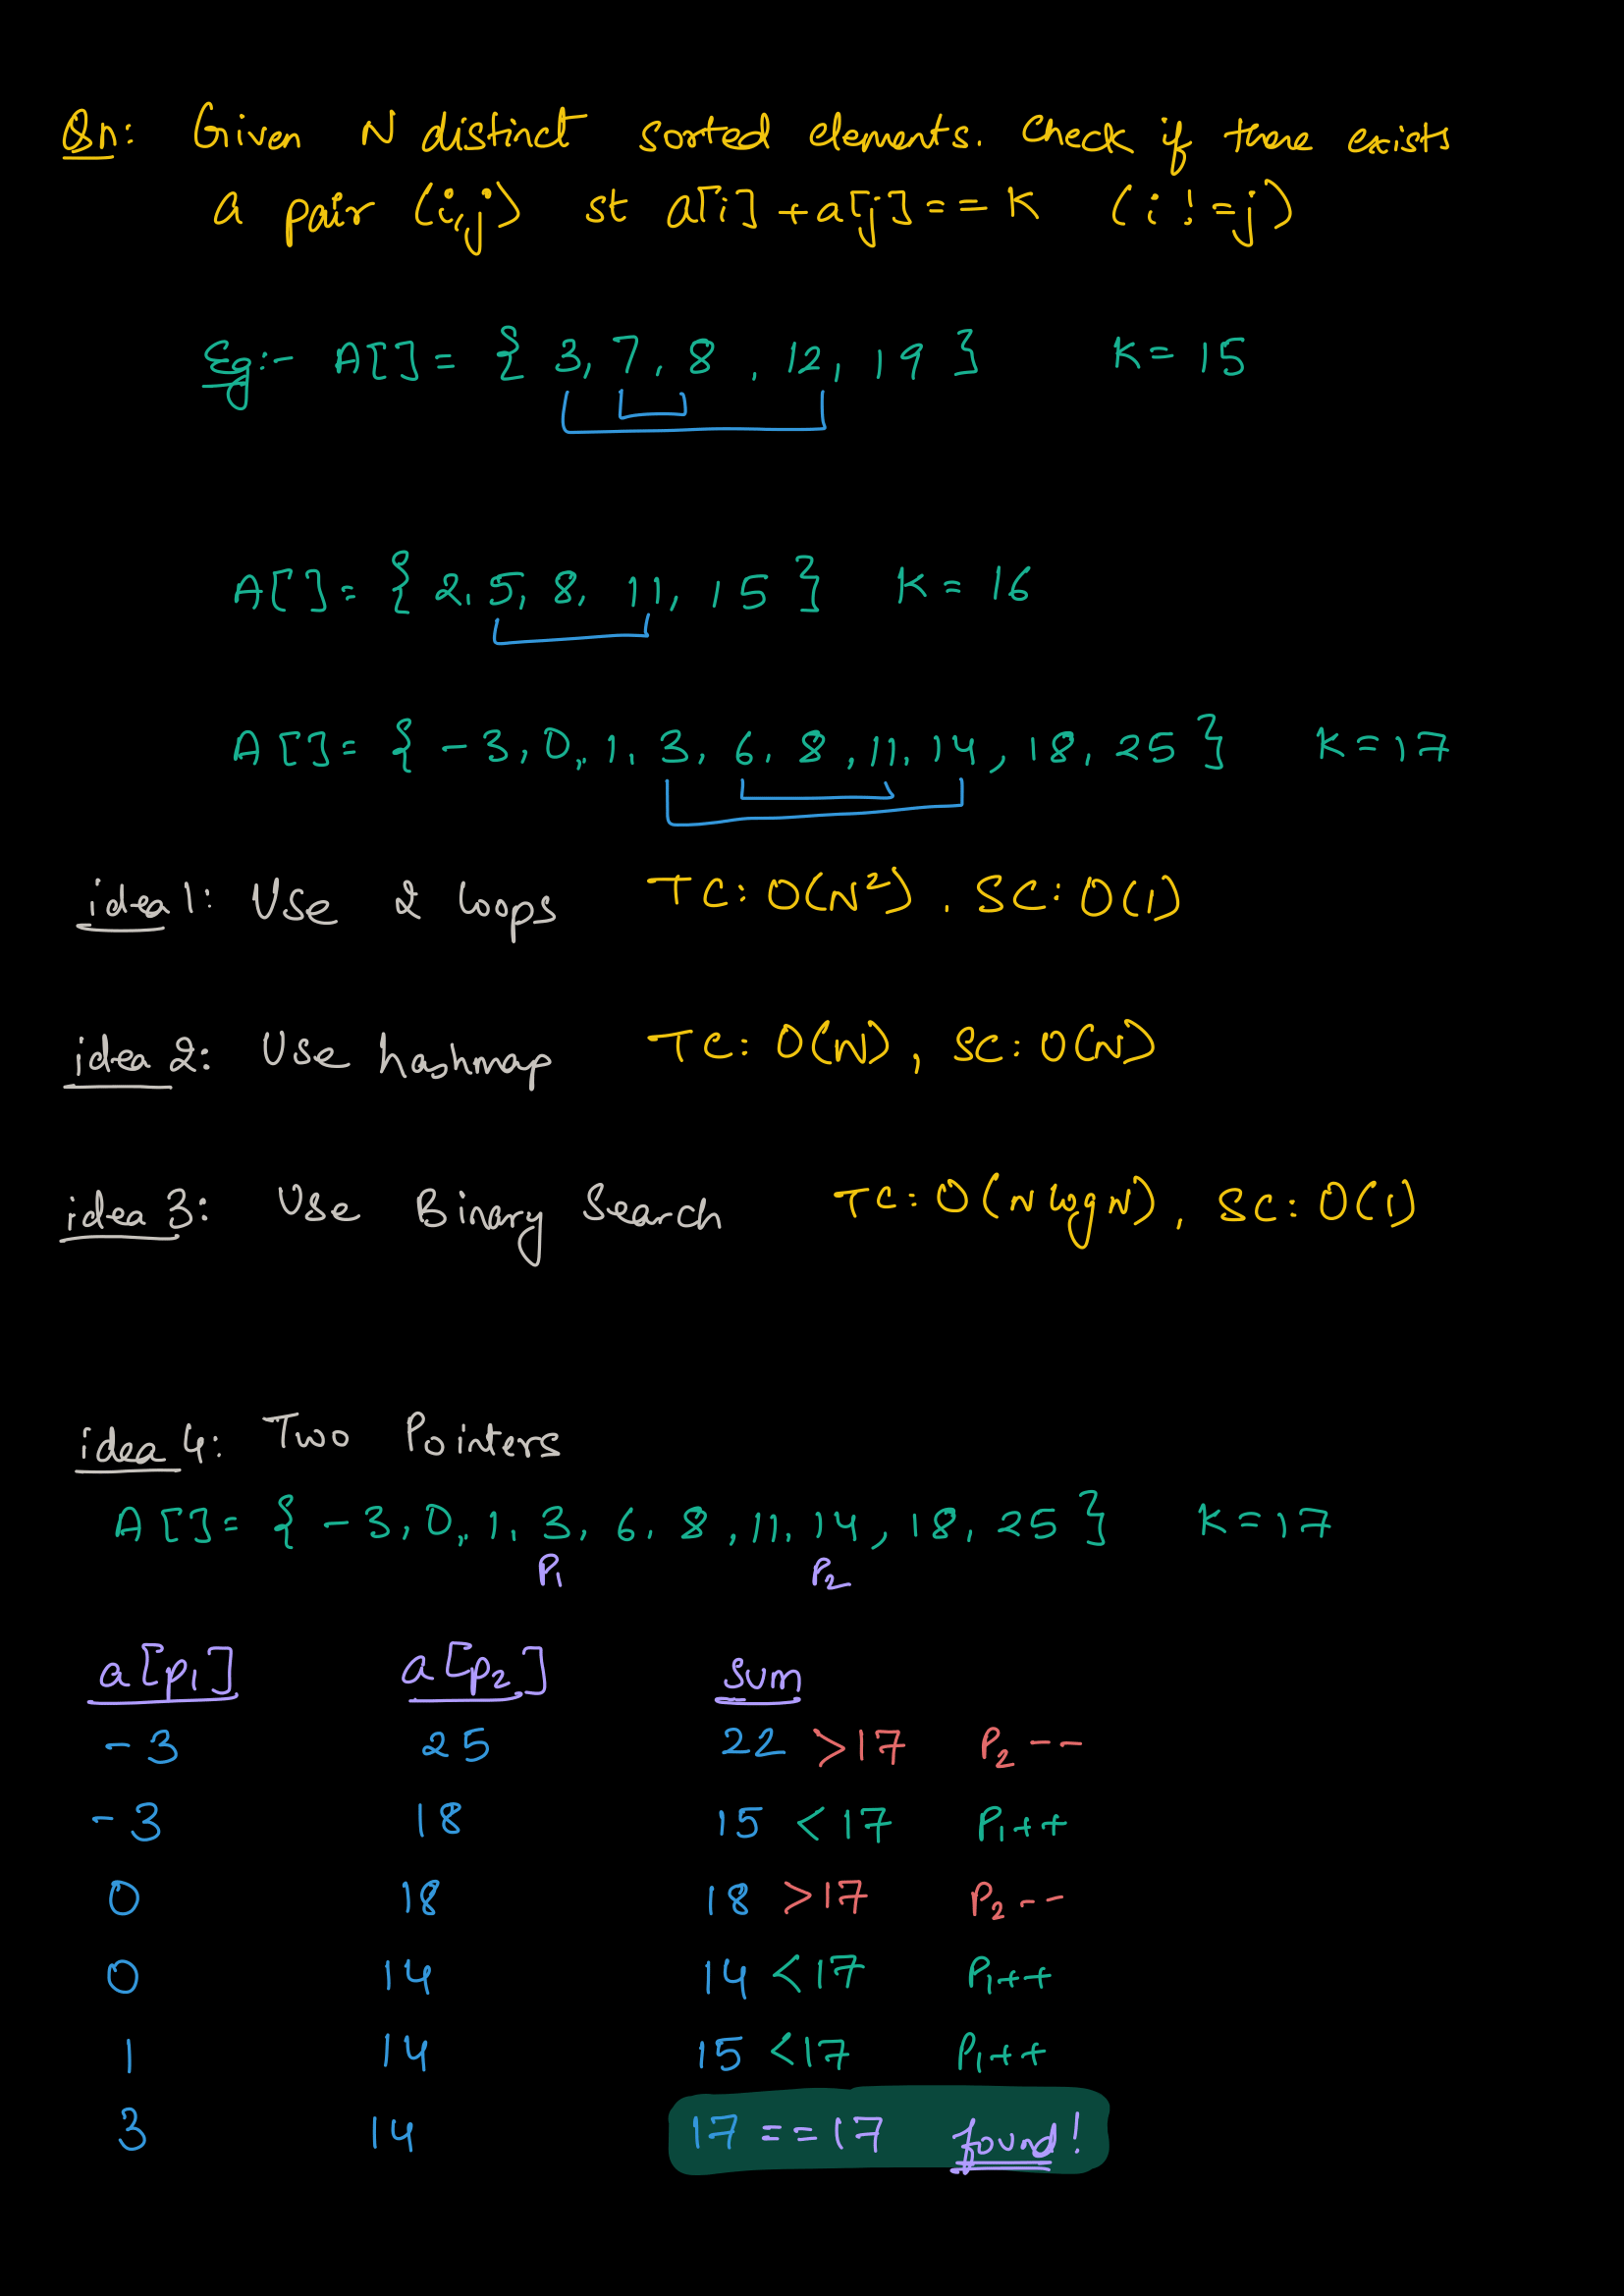 Qn: Given N distinct sorted elements. Check if there exists
a pair (i,j) st a[i] + a[j] == K (i != j)
Eg:- A[] = { 3, 7, 8, 12, 19 } K = 15
A[] = { 2, 5, 8, 11, 15 } K = 16
A[] = { -3, 0, 1, 3, 6, 8, 11, 14, 18, 25 } K = 17
idea 1: Use 2 loops TC: O(N²), SC: O(1)
idea 2: Use hashmap TC: O(N), SC: O(N)
idea 3: Use Binary Search TC: O(N log N), SC: O(1)
idea 4: Two Pointers
A[] = { -3, 0, 1, 3, 6, 8, 11, 14, 18, 25 } K = 17
P₁ P₂
a[p₁] a[p₂] sum
-3 25 22 >17 P₂--
-3 18 15 <17 P₁++
0 18 18 >17 P₂--
0 14 14 <17 P₁++
1 14 15 <17 P₁++
3 14 17 ==17 found!